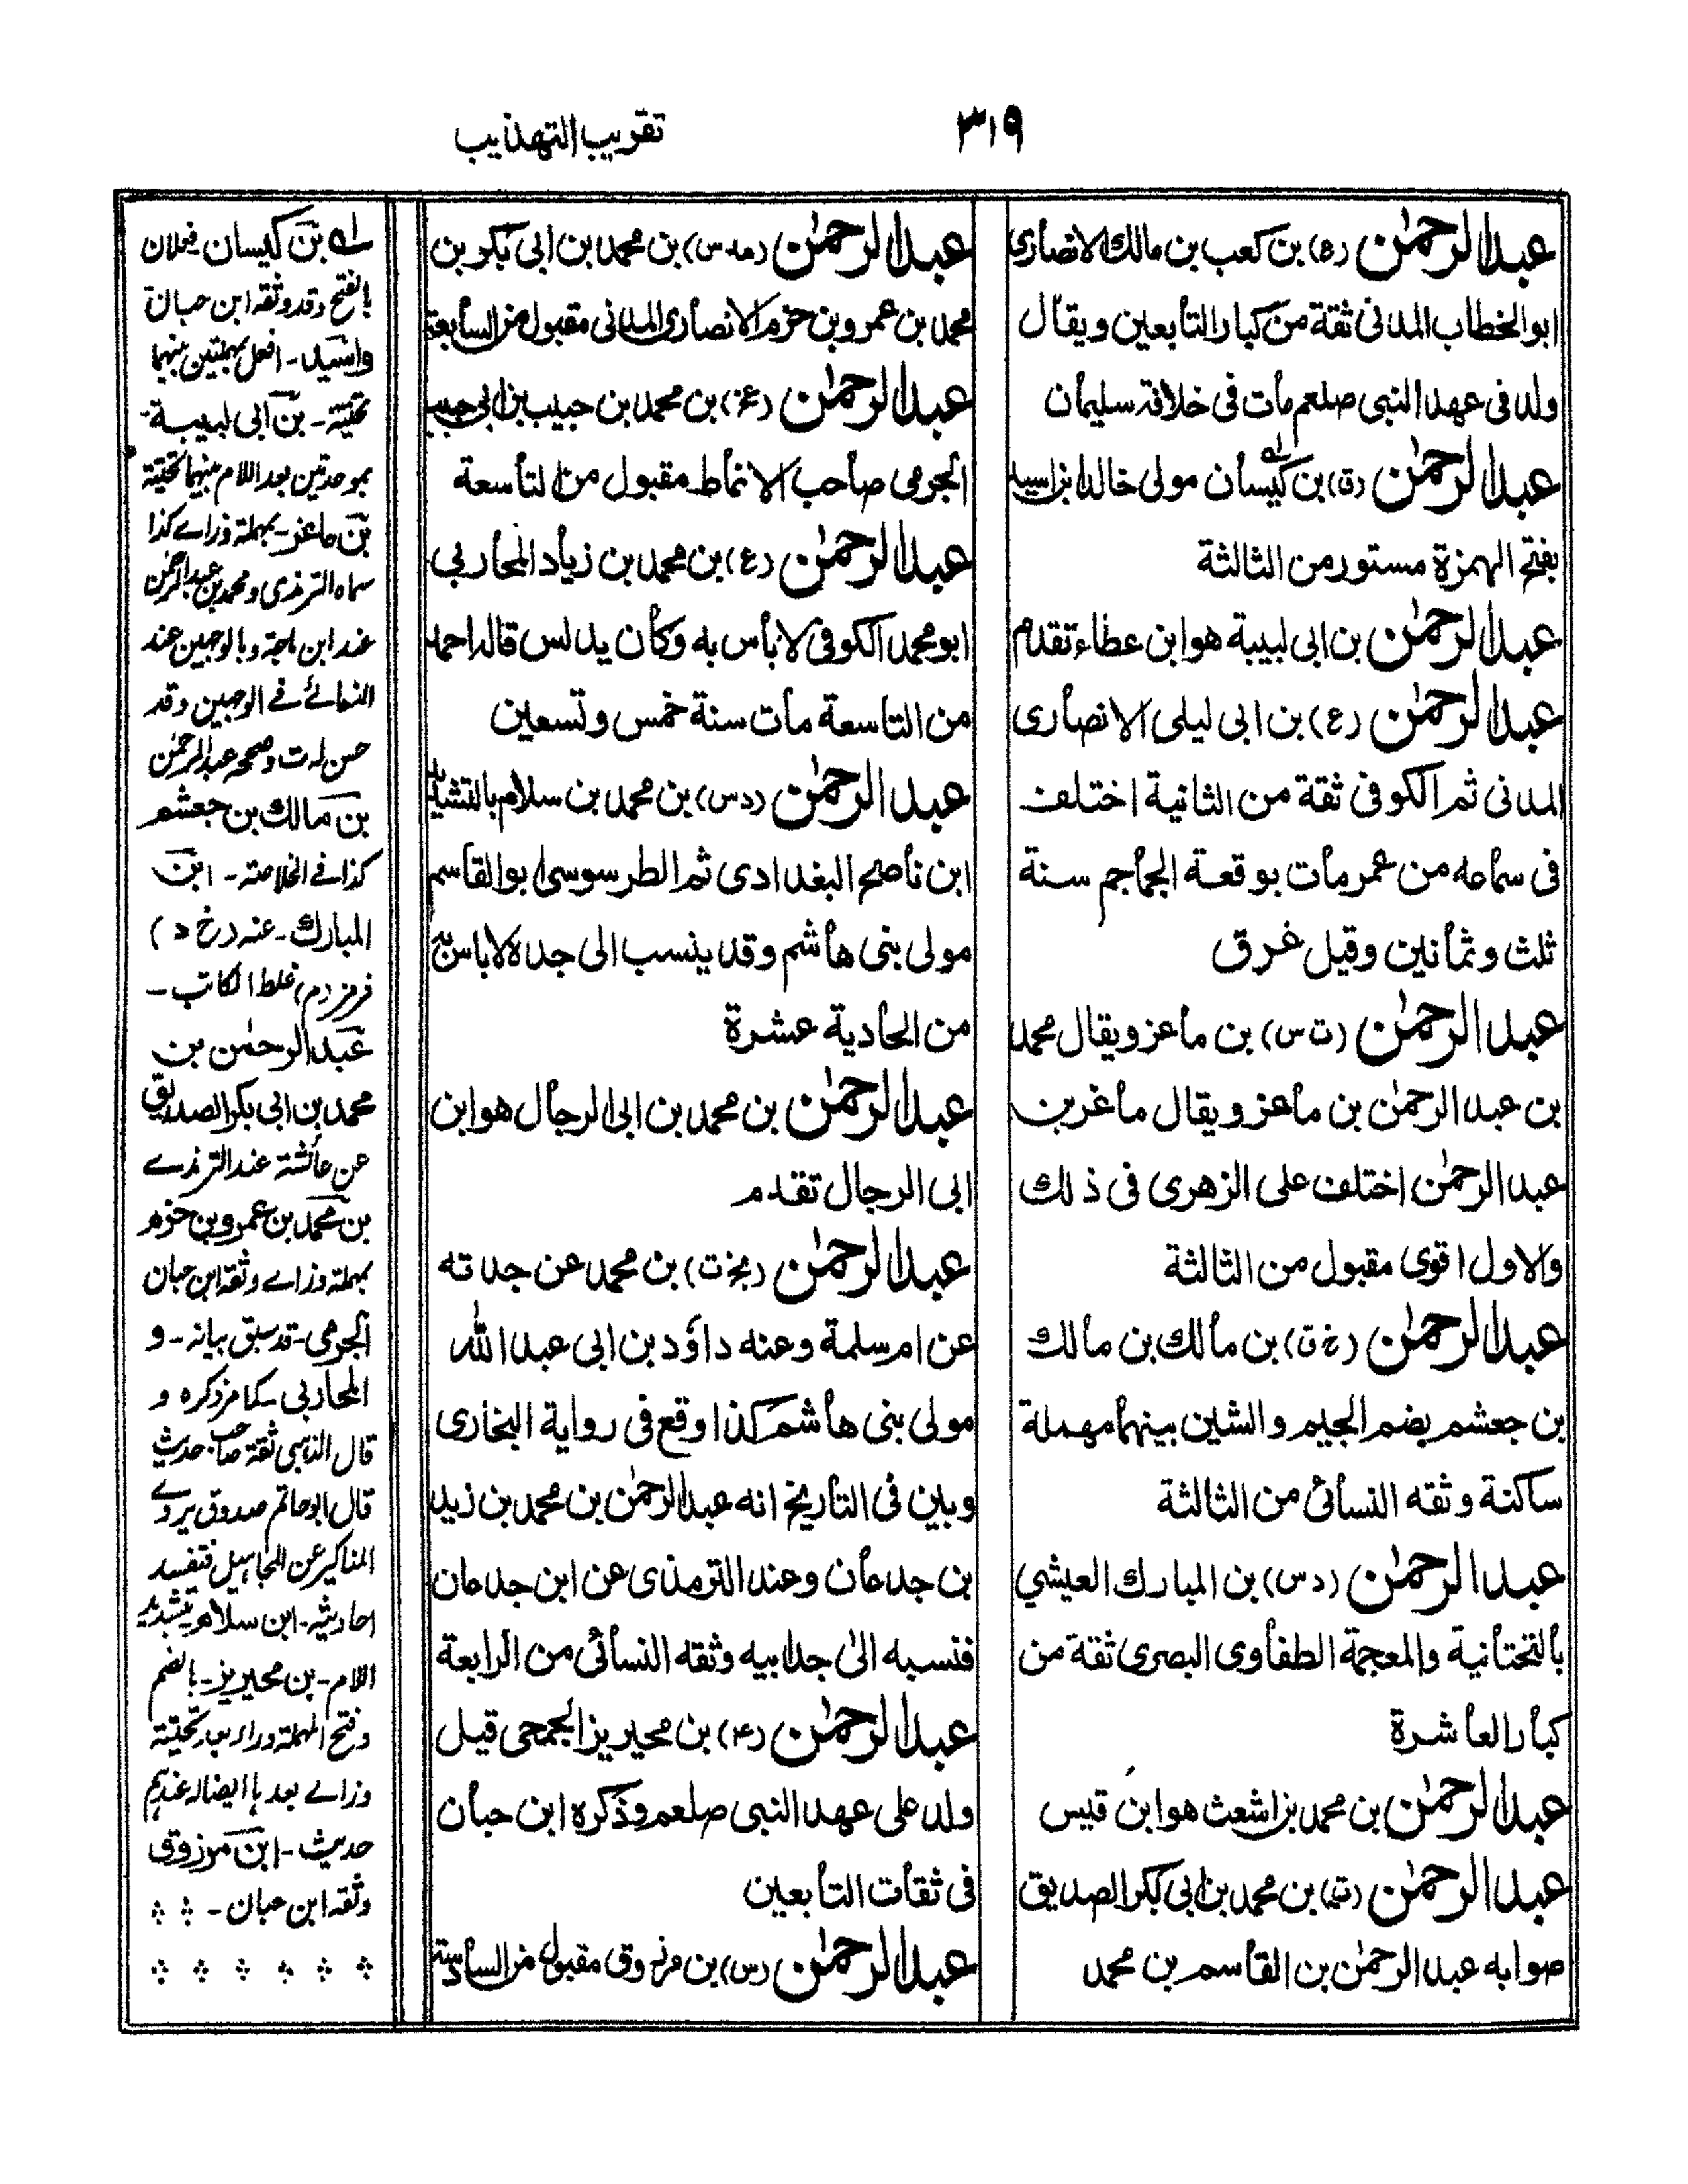 ٣١٩
تقريب التهذيب
عبد الرحمٰن (ع) بن كعب بن مالك الانصاري
ابو الخطاب المدنى ثقة من كبار التابعين ويقال
ولد فى عهد النبى صلعم مات فى خلافة سليمان
عبد الرحمٰن (ق) بن كيسان مولى خالد ابن اسيد
بفتح الهمزة مستور من الثالثة
عبد الرحمٰن بن ابى لبيبة هو ابن عطاء تقدم
عبد الرحمٰن (ع) بن ابى ليلى الانصارى
المدنى ثم الكوفى ثقة من الثانية اختلف
فى سماعه من عمر مات بوقعة الجماجم سنة
ثلث وثمانين وقيل غرق
عبد الرحمٰن (ت س) بن ماعز ويقال محمد
بن عبد الرحمٰن بن ماعز ويقال ماعز بن
عبد الرحمٰن اختلف على الزهرى فى ذلك
والاول اقوى مقبول من الثالثة
عبد الرحمٰن (خ ق) بن مالك بن مالك
بن جعشم بضم الجيم والشين بينهما مهملة
ساكنة وثقه النسائى من الثالثة
عبد الرحمٰن (د س) بن المبارك العيشي
بالتختانية والمعجمة الطفاوى البصرى ثقة من
كبار العاشرة
عبد الرحمٰن بن محمد بن اشعث هو ابن قيس
عبد الرحمٰن (ت) بن محمد بن ابى بكر الصديق
صوابه عبد الرحمٰن بن القاسم بن محمد
عبد الرحمٰن (مد س) بن محمد بن ابى بكر بن
محمد بن عمرو بن حزم الانصارى المدنى مقبول من السابعة
عبد الرحمٰن (عخ) بن محمد بن حبيب بن ابى حبيب
الجرمى صاحب الانماط مقبول من التاسعة
عبد الرحمٰن (ع) بن محمد بن زياد المحاربى
ابو محمد الكوفى لا بأس به وكان يدلس قاله احمد
من التاسعة مات سنة خمس وتسعين
عبد الرحمٰن (د س) بن محمد بن سلام بالتشديد
ابن ناصح البغدادى ثم الطرسوسى ابو القاسم
مولى بنى هاشم وقد ينسب الى جده لا باس به
من الحادية عشرة
عبد الرحمٰن بن محمد بن ابى الرجال هو ابن
ابى الرجال تقدم
عبد الرحمٰن (بخ ت) بن محمد عن جدته
عن ام سلمة وعنه داؤد بن ابى عبد الله
مولى بنى هاشم كذا وقع فى رواية البخارى
وبين فى التاريخ انه عبد الرحمٰن بن محمد بن زيد
بن جدعان وعند الترمذى عن ابن جدعان
فنسبه الىٰ جد ابيه وثقه النسائى من الرابعة
عبد الرحمٰن (۴) بن محيريز الجمحى قيل
ولد على عهد النبى صلعم وذكره ابن حبان
فى ثقات التابعين
عبد الرحمٰن (س) بن مرزوق مقبول من السادسة
له بن كيسان فعلان
بالفتح وقد وثقه ابن حبان
واسيد - افعل بمهملتين بينهما
تحتية - بن ابى لبيبة -
بموحدتين بعد اللام بينهما تحتية
بن ماعز - بمهملة وزاے كذا
سماه الترمذى ومحمد بن عبد الرحمٰن
عند ابن ماجة وبالوجهين عند
النسائے فے الوجهين وقد
حسن له ت وصححه عبد الرحمٰن
بن مالك بن جعشم
كذا فے الخلاصة - ابن
المبارك - عنه (خ د)
فرمز (م) غلط الكاتب -
عبد الرحمٰن بن
محمد بن ابى بكر الصديق
عن عائشة عند الترمذے
بن محمد بن عمرو بن حزم
بمهملة وزاے وثقه ابن حبان
الجرمى - قد سبق بيانه - و
المحاربى - كما مر ذكره و
قال الذهبى ثقة صاحب حديث
قال ابو حاتم صدوق يروے
المناكير عن المجاهيل فتفسد
احاديثه - ابن سلام بتشديد
اللام - بن محيريز - بالضم
وفتح المهملة وراء بعد تحتية
وزاے بعدها ايضا له عندهم
حديث - ابن مرزوق
وثقه ابن حبان -